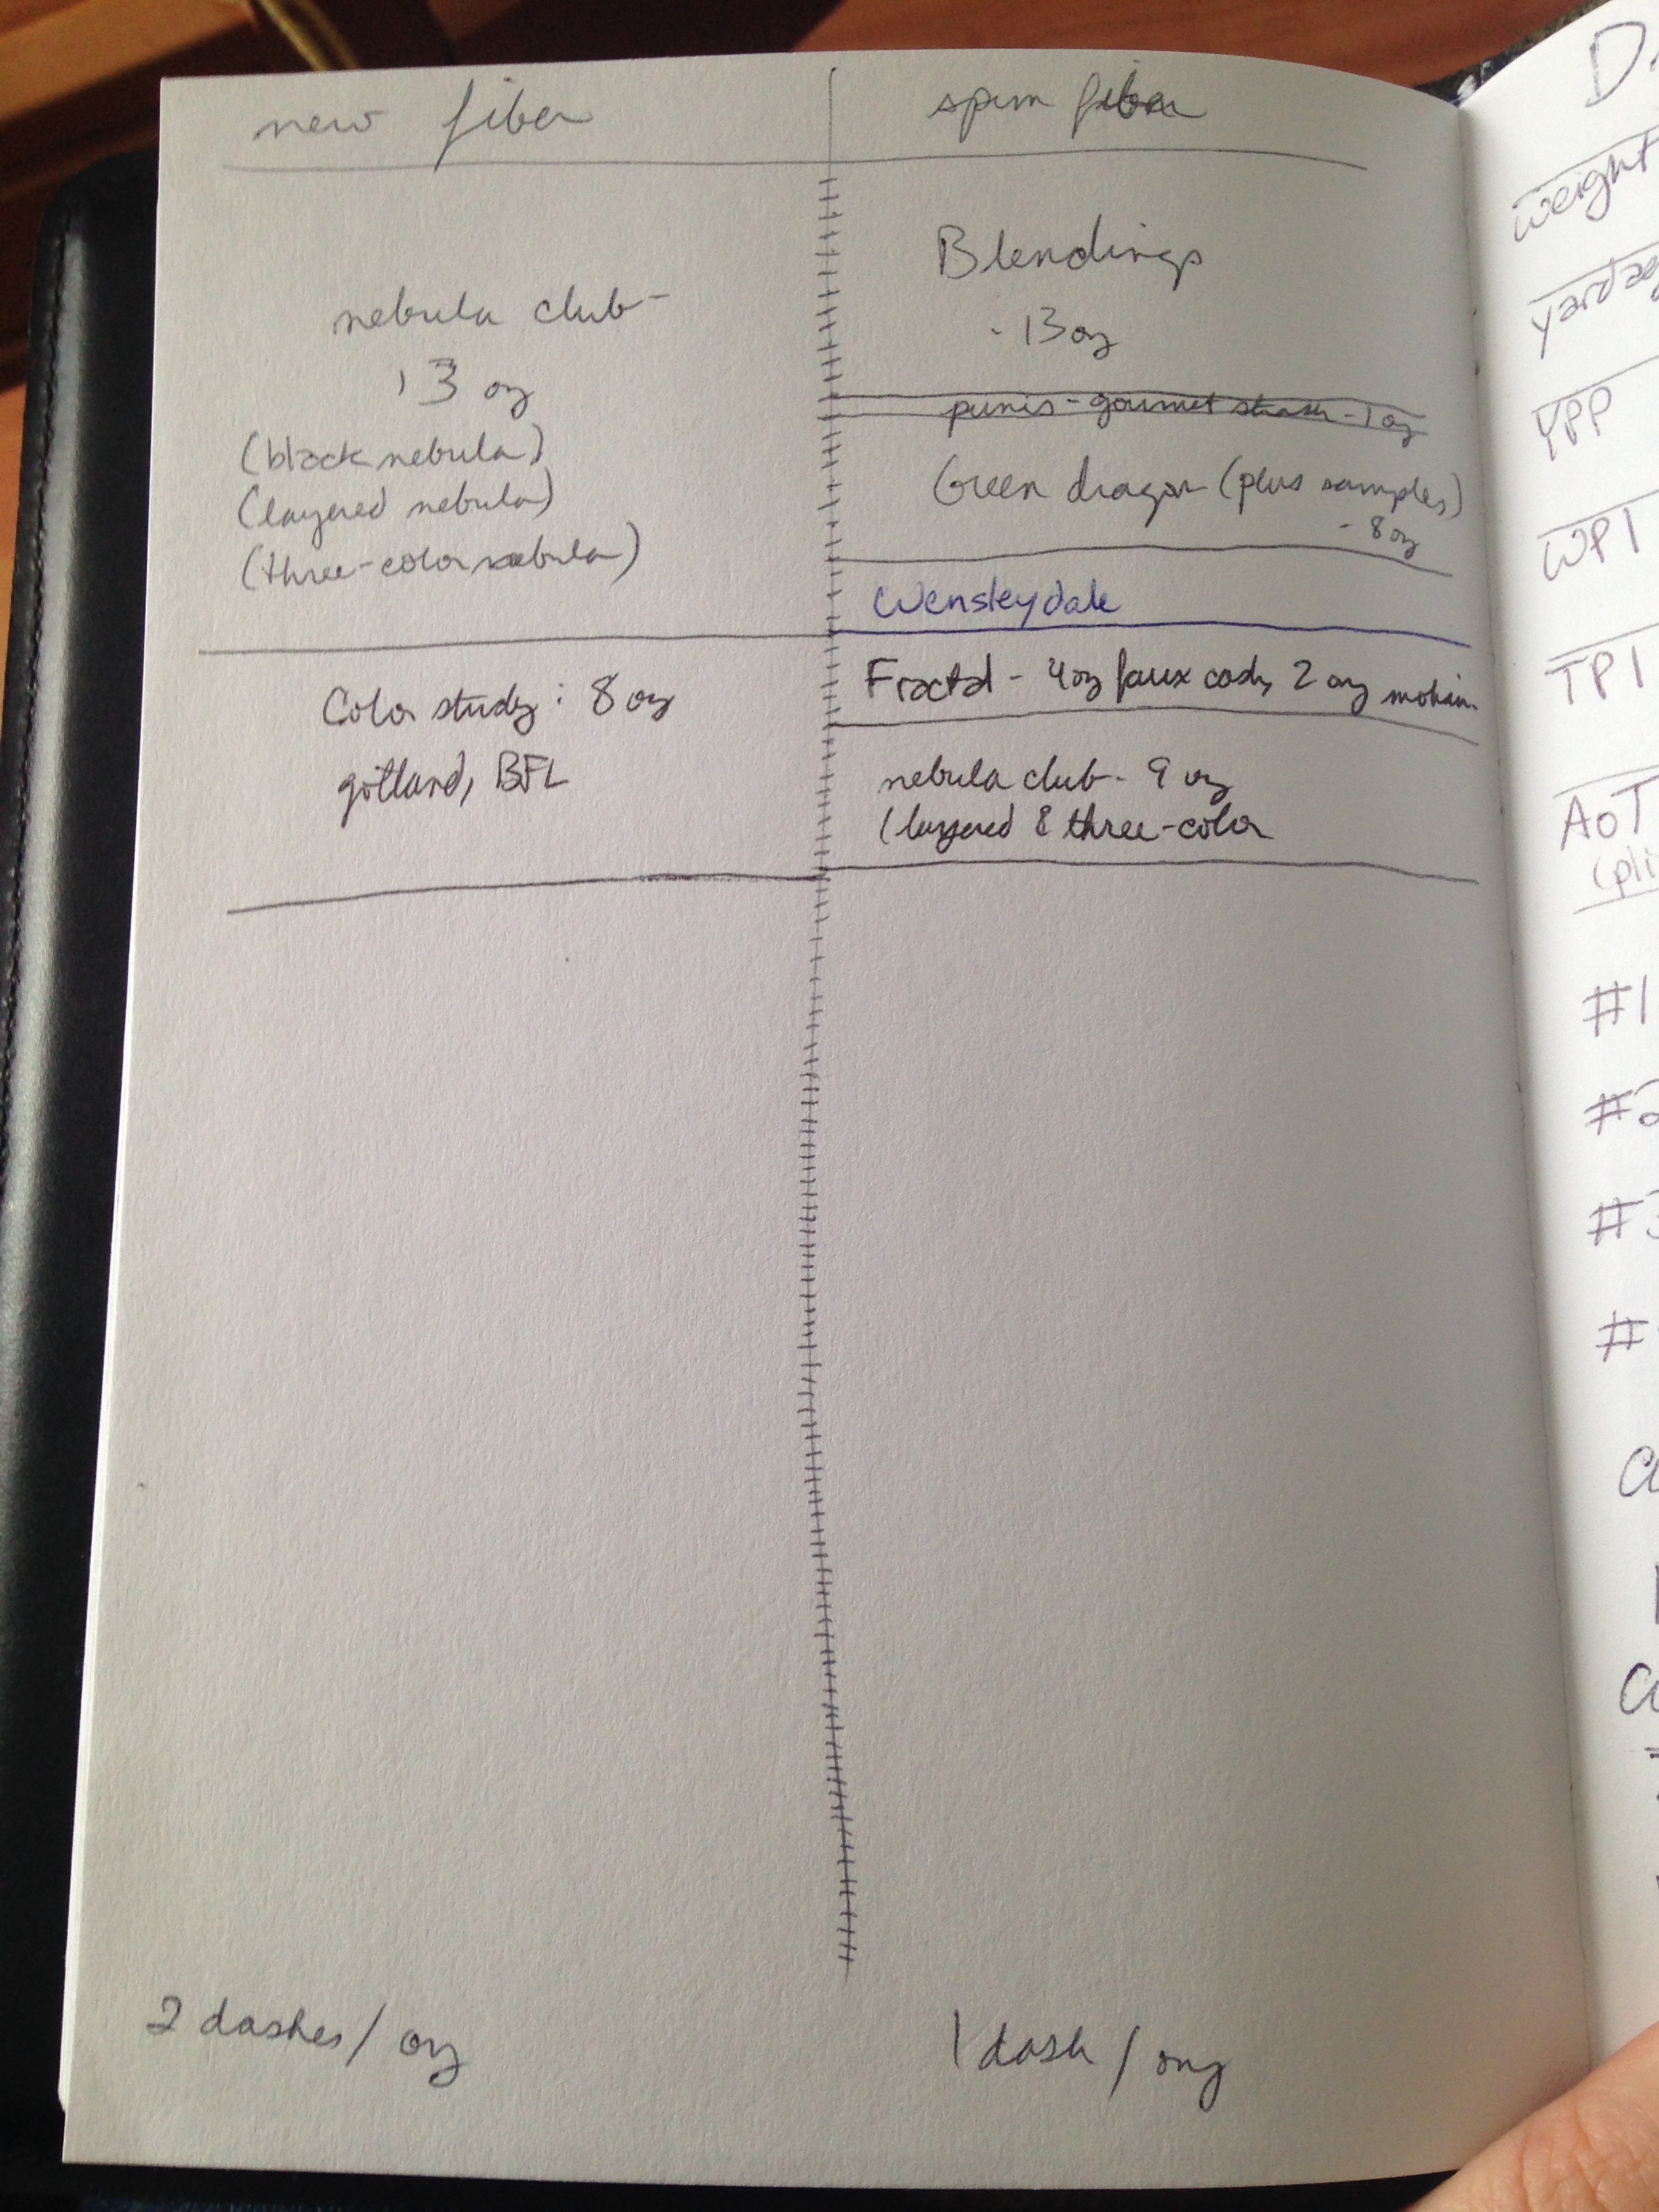 new fiber
nebula club-
13 oz
(black nebula)
(layered nebula)
(three-color nebula)
Color study: 8 oz
gotland, BFL
2 dashes / oz
spun fiber
Blendings
- 13 oz
punis - gourmet stash - 1 oz
Green dragon (plus samples)
- 8 oz
Wensleydale
Fractal - 4oz faux cash, 2 oz mohair.
nebula club - 9 oz
(layered & three-color
1 dash / oz
D
weight
YPP
WPI
TPI
AoT
(pli
#1
#2
#3
#